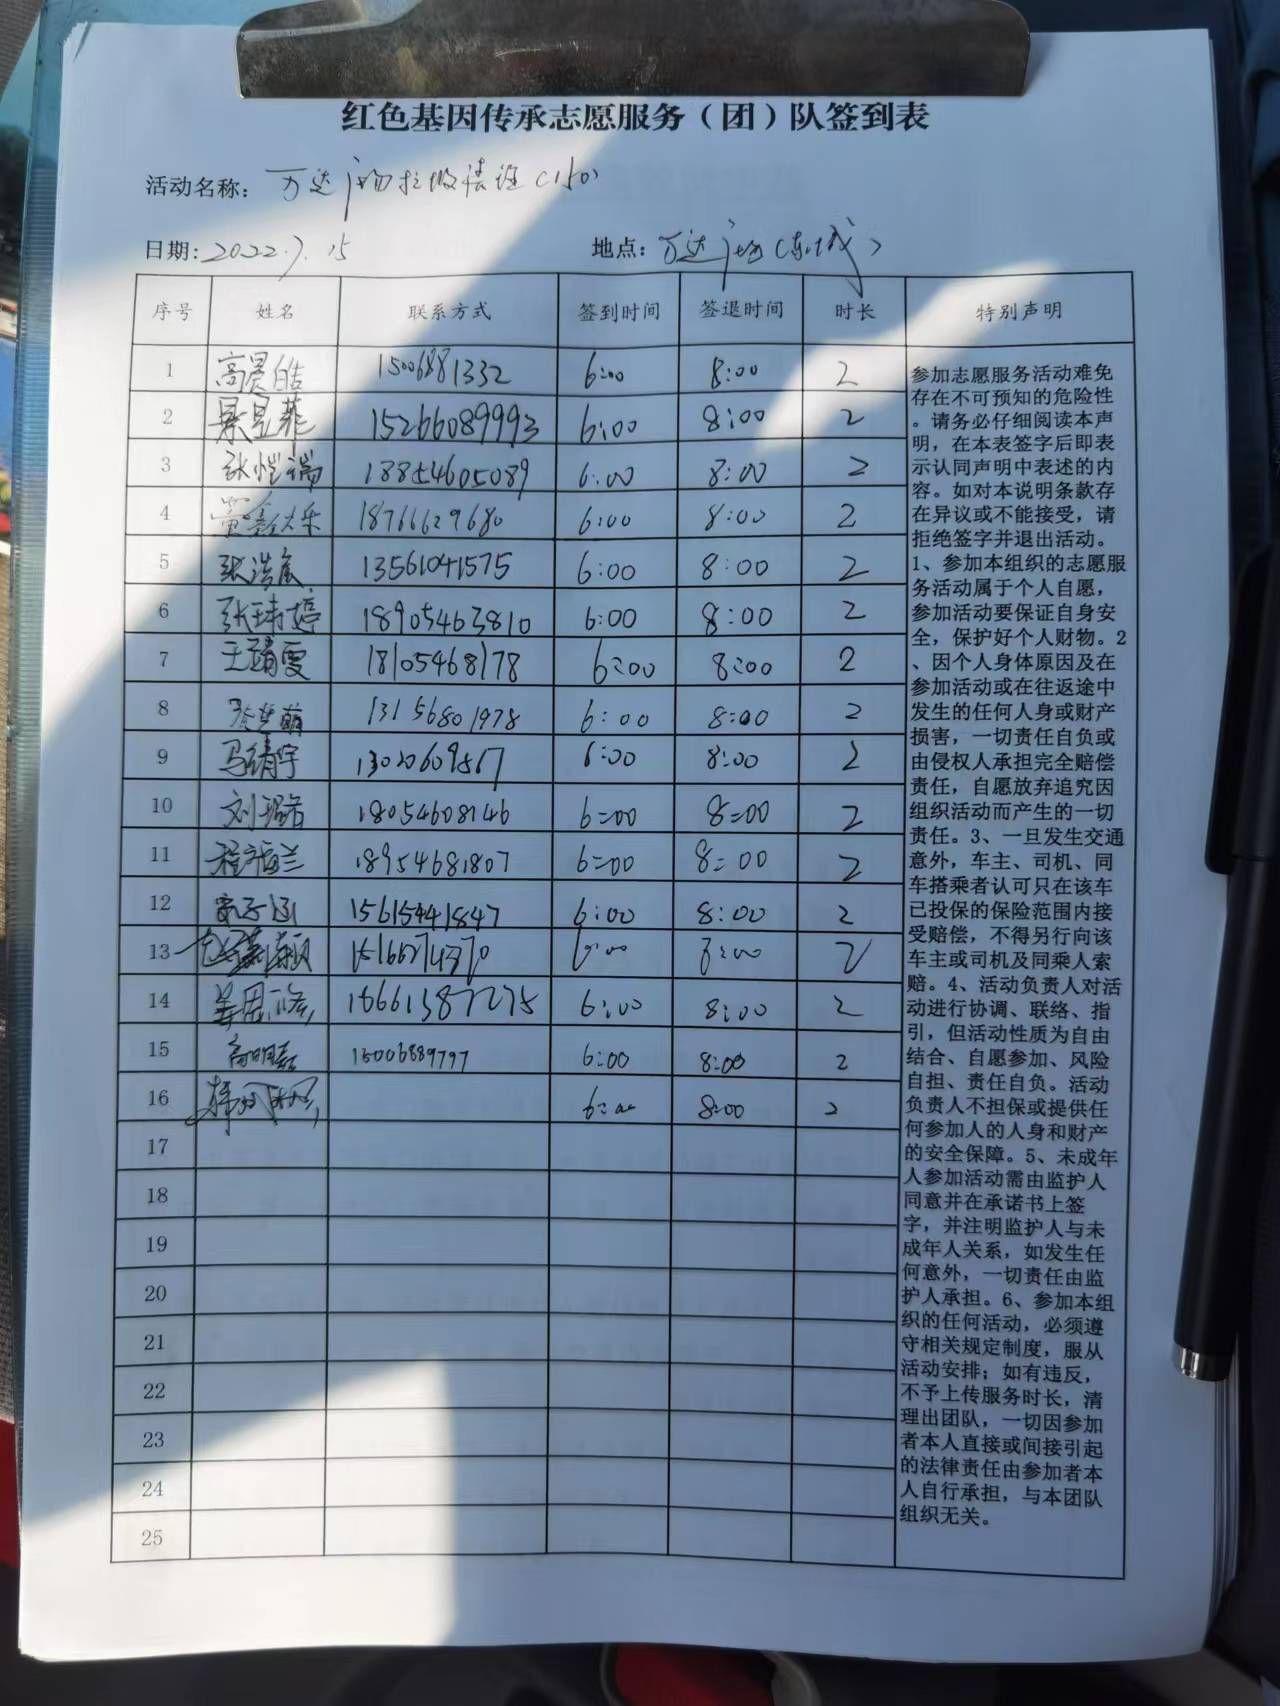 红色基因传承志愿服务（团）队签到表
活动名称：万达广场垃圾清理
日期：2022.7.15 地点：万达广场（东城）
序号 姓名 联系方式 签到时间 签退时间 时长 特别声明
1 高晨皓 15006881332 6:00 8:00 2
2 景昱菲 15266089993 6:00 8:00 2
3 张恺瑞 18854605089 6:00 8:00 2
4 18766629680 6:00 8:00 2
5 张浩 13561041575 6:00 8:00 2
6 张琲婷 18905463810 6:00 8:00 2
7 王靖雯 18105468178 6:00 8:00 2
8 13156801978 6:00 8:00 2
9 马靖宇 13020609567 6:00 8:00 2
10 刘 18054608146 6:00 8:00 2
11 程梅兰 18954681807 6:00 8:00 2
12 15615441847 6:00 8:00 2
13 6:00 8:00 2
14 姜 16661387275 6:00 8:00 2
15 高明 15006889797 6:00 8:00 2
16 6:00 8:00 2
17
18
19
20
21
22
23
24
25
参加志愿服务活动难免
存在不可预知的危险性
。请务必仔细阅读本声
明，在本表签字后即表
示认同声明中表述的内
容。如对本说明条款存
在异议或不能接受，请
拒绝签字并退出活动。
1、参加本组织的志愿服
务活动属于个人自愿，
参加活动要保证自身安
全，保护好个人财物。2
、因个人身体原因及在
参加活动或在往返途中
发生的任何人身或财产
损害，一切责任自负或
由侵权人承担完全赔偿
责任，自愿放弃追究因
组织活动而产生的一切
责任。3、一旦发生交通
意外，车主、司机、同
车搭乘者认可只在该车
已投保的保险范围内接
受赔偿，不得另行向该
车主或司机及同乘人索
赔。4、活动负责人对活
动进行协调、联络、指
引，但活动性质为自由
结合、自愿参加、风险
自担、责任自负。活动
负责人不担保或提供任
何参加人的人身和财产
的安全保障。5、未成年
人参加活动需由监护人
同意并在承诺书上签
字，并注明监护人与未
成年人关系，如发生任
何意外，一切责任由监
护人承担。6、参加本组
织的任何活动，必须遵
守相关规定制度，服从
活动安排；如有违反，
不予上传服务时长，清
理出团队，一切因参加
者本人直接或间接引起
的法律责任由参加者本
人自行承担，与本团队
组织无关。